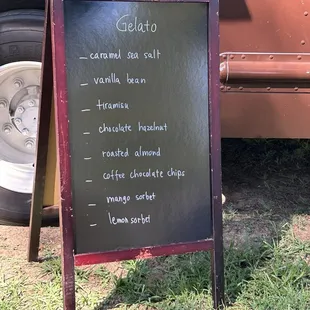 Gelato
- caramel sea salt
- vanilla bean
- tiramisu
- chocolate hazelnut
- roasted almond
- coffee chocolate chips
- mango sorbet
- lemon sorbet